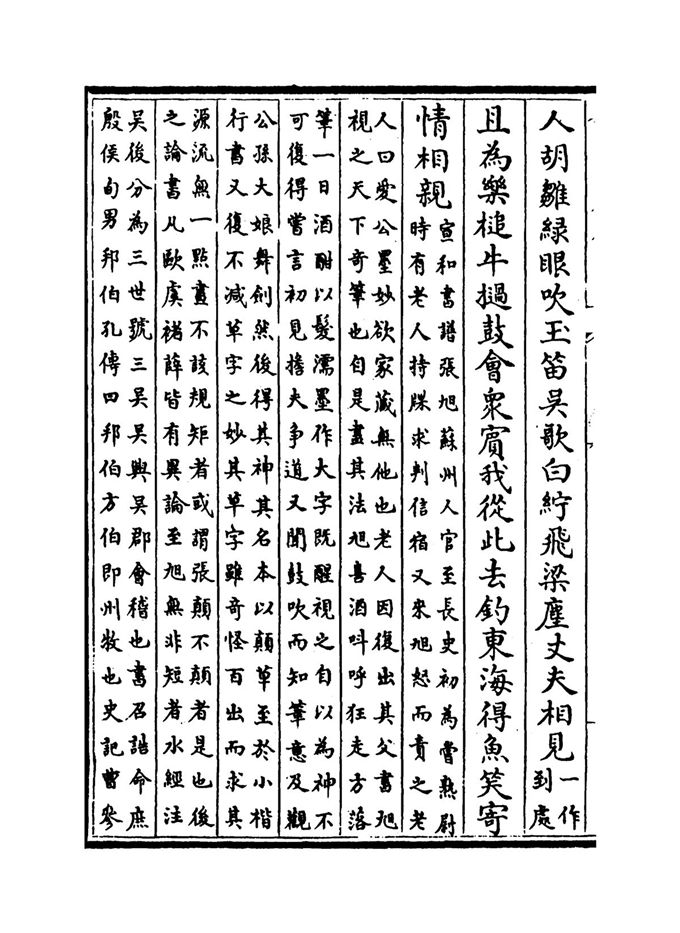 人胡雛綠眼吹玉笛吳歌白紵飛梁塵丈夫相見一作到處
且為樂槌牛撾鼓會衆賓我從此去釣東海得魚笑寄
情相親宣和書譜張旭蘇州人官至長史初為嘗熟尉
時有老人持牒求判信宿又來旭怒而責之老
人曰愛公墨妙欲家藏無他也老人因復出其父書旭
視之天下奇筆也自是盡其法旭喜酒呌呼狂走方落
筆一日酒酣以髮濡墨作大字既醒視之自以為神不
可復得嘗言初見擔夫争道又聞鼓吹而知筆意及觀
公孫大娘舞劍然後得其神其名本以顛草至於小楷
行書又復不减草字之妙其草字雖奇怪百出而求其
源流無一點畫不該規矩者或謂張顛不顛者是也後
之論書凡歐虞褚薛皆有異論至旭無非短者水經注
吳後分為三世號三吳吳興吳郡會稽也書召誥命庶
殷侯甸男邦伯孔傳四邦伯方伯即州牧也史記曹參